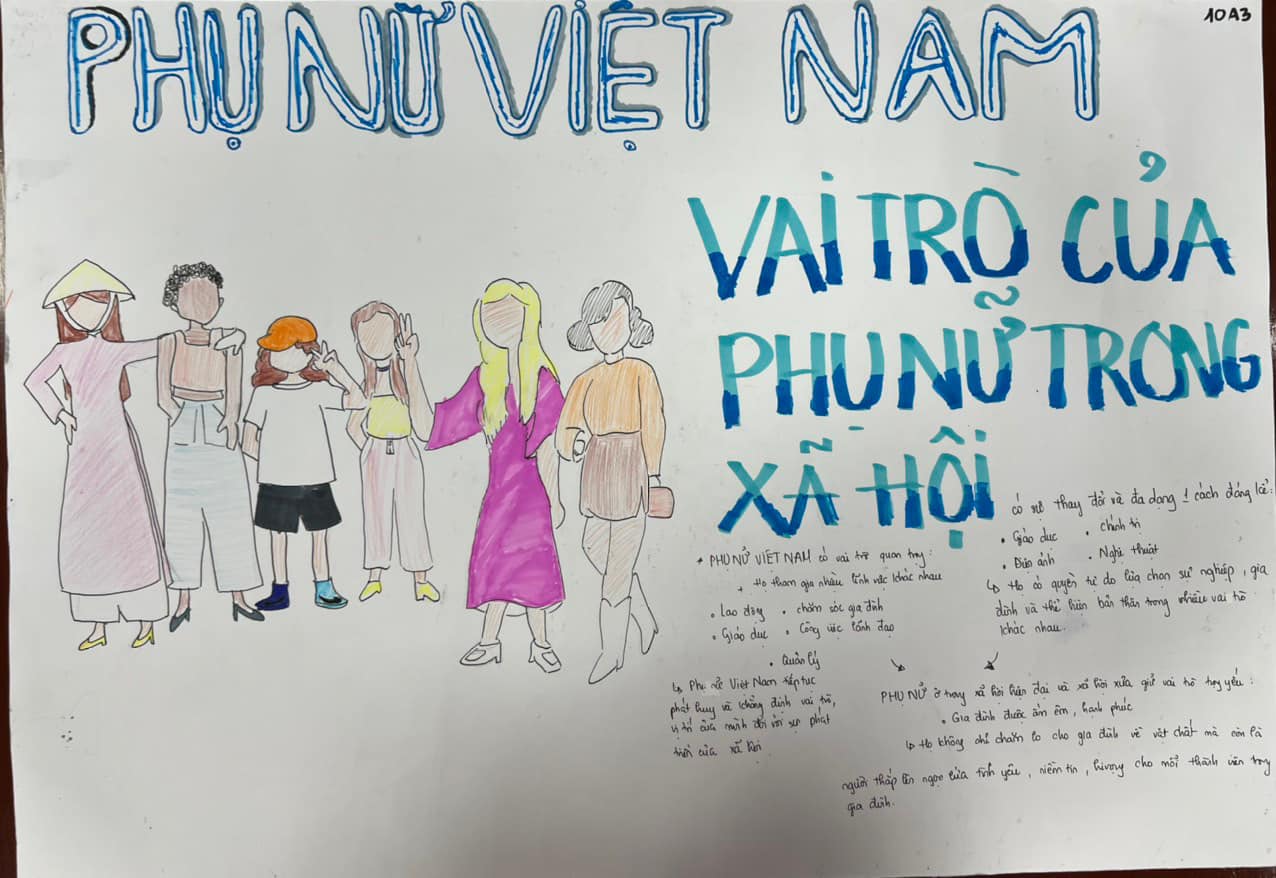 PHỤ NỮ VIỆT NAM
10A3
VAI TRÒ CỦA
PHỤ NỮ TRONG
XÃ HỘI
+ PHỤ NỮ VIỆT NAM có vai trò quan trọng:
+ Họ tham gia nhiều lĩnh vực khác nhau
• Lao động • chăm sóc gia đình
• Giáo dục • Công việc lãnh đạo
• Quản lý
↳ Phụ nữ Việt Nam tiếp tục
phát huy và khẳng định vai trò,
vị trí của mình đối với sự phát
triển của xã hội
có sự thay đổi và đa dạng 1 cách đáng kể:
• Giáo dục • chính trị
• Điện ảnh • Nghệ thuật
↳ Họ có quyền tự do lựa chọn sự nghiệp, gia
đình và thể hiện bản thân trong nhiều vai trò
khác nhau.
PHỤ NỮ ở trong xã hội hiện đại và xã hội xưa giữ vai trò trọng yếu:
• Gia đình được ấm êm, hạnh phúc
↳ Họ không chỉ chăm lo cho gia đình về vật chất mà còn là
người thắp lên ngọn lửa tình yêu, niềm tin, hi vọng cho mỗi thành viên trong
gia đình.